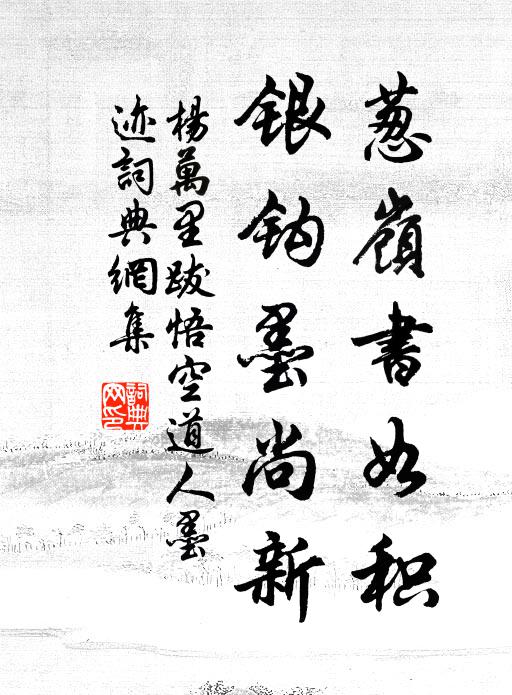 葱嶺書如积
銀钩墨尚新
楊萬里跋悟空道人墨
迹詞典網集
詞典
网印